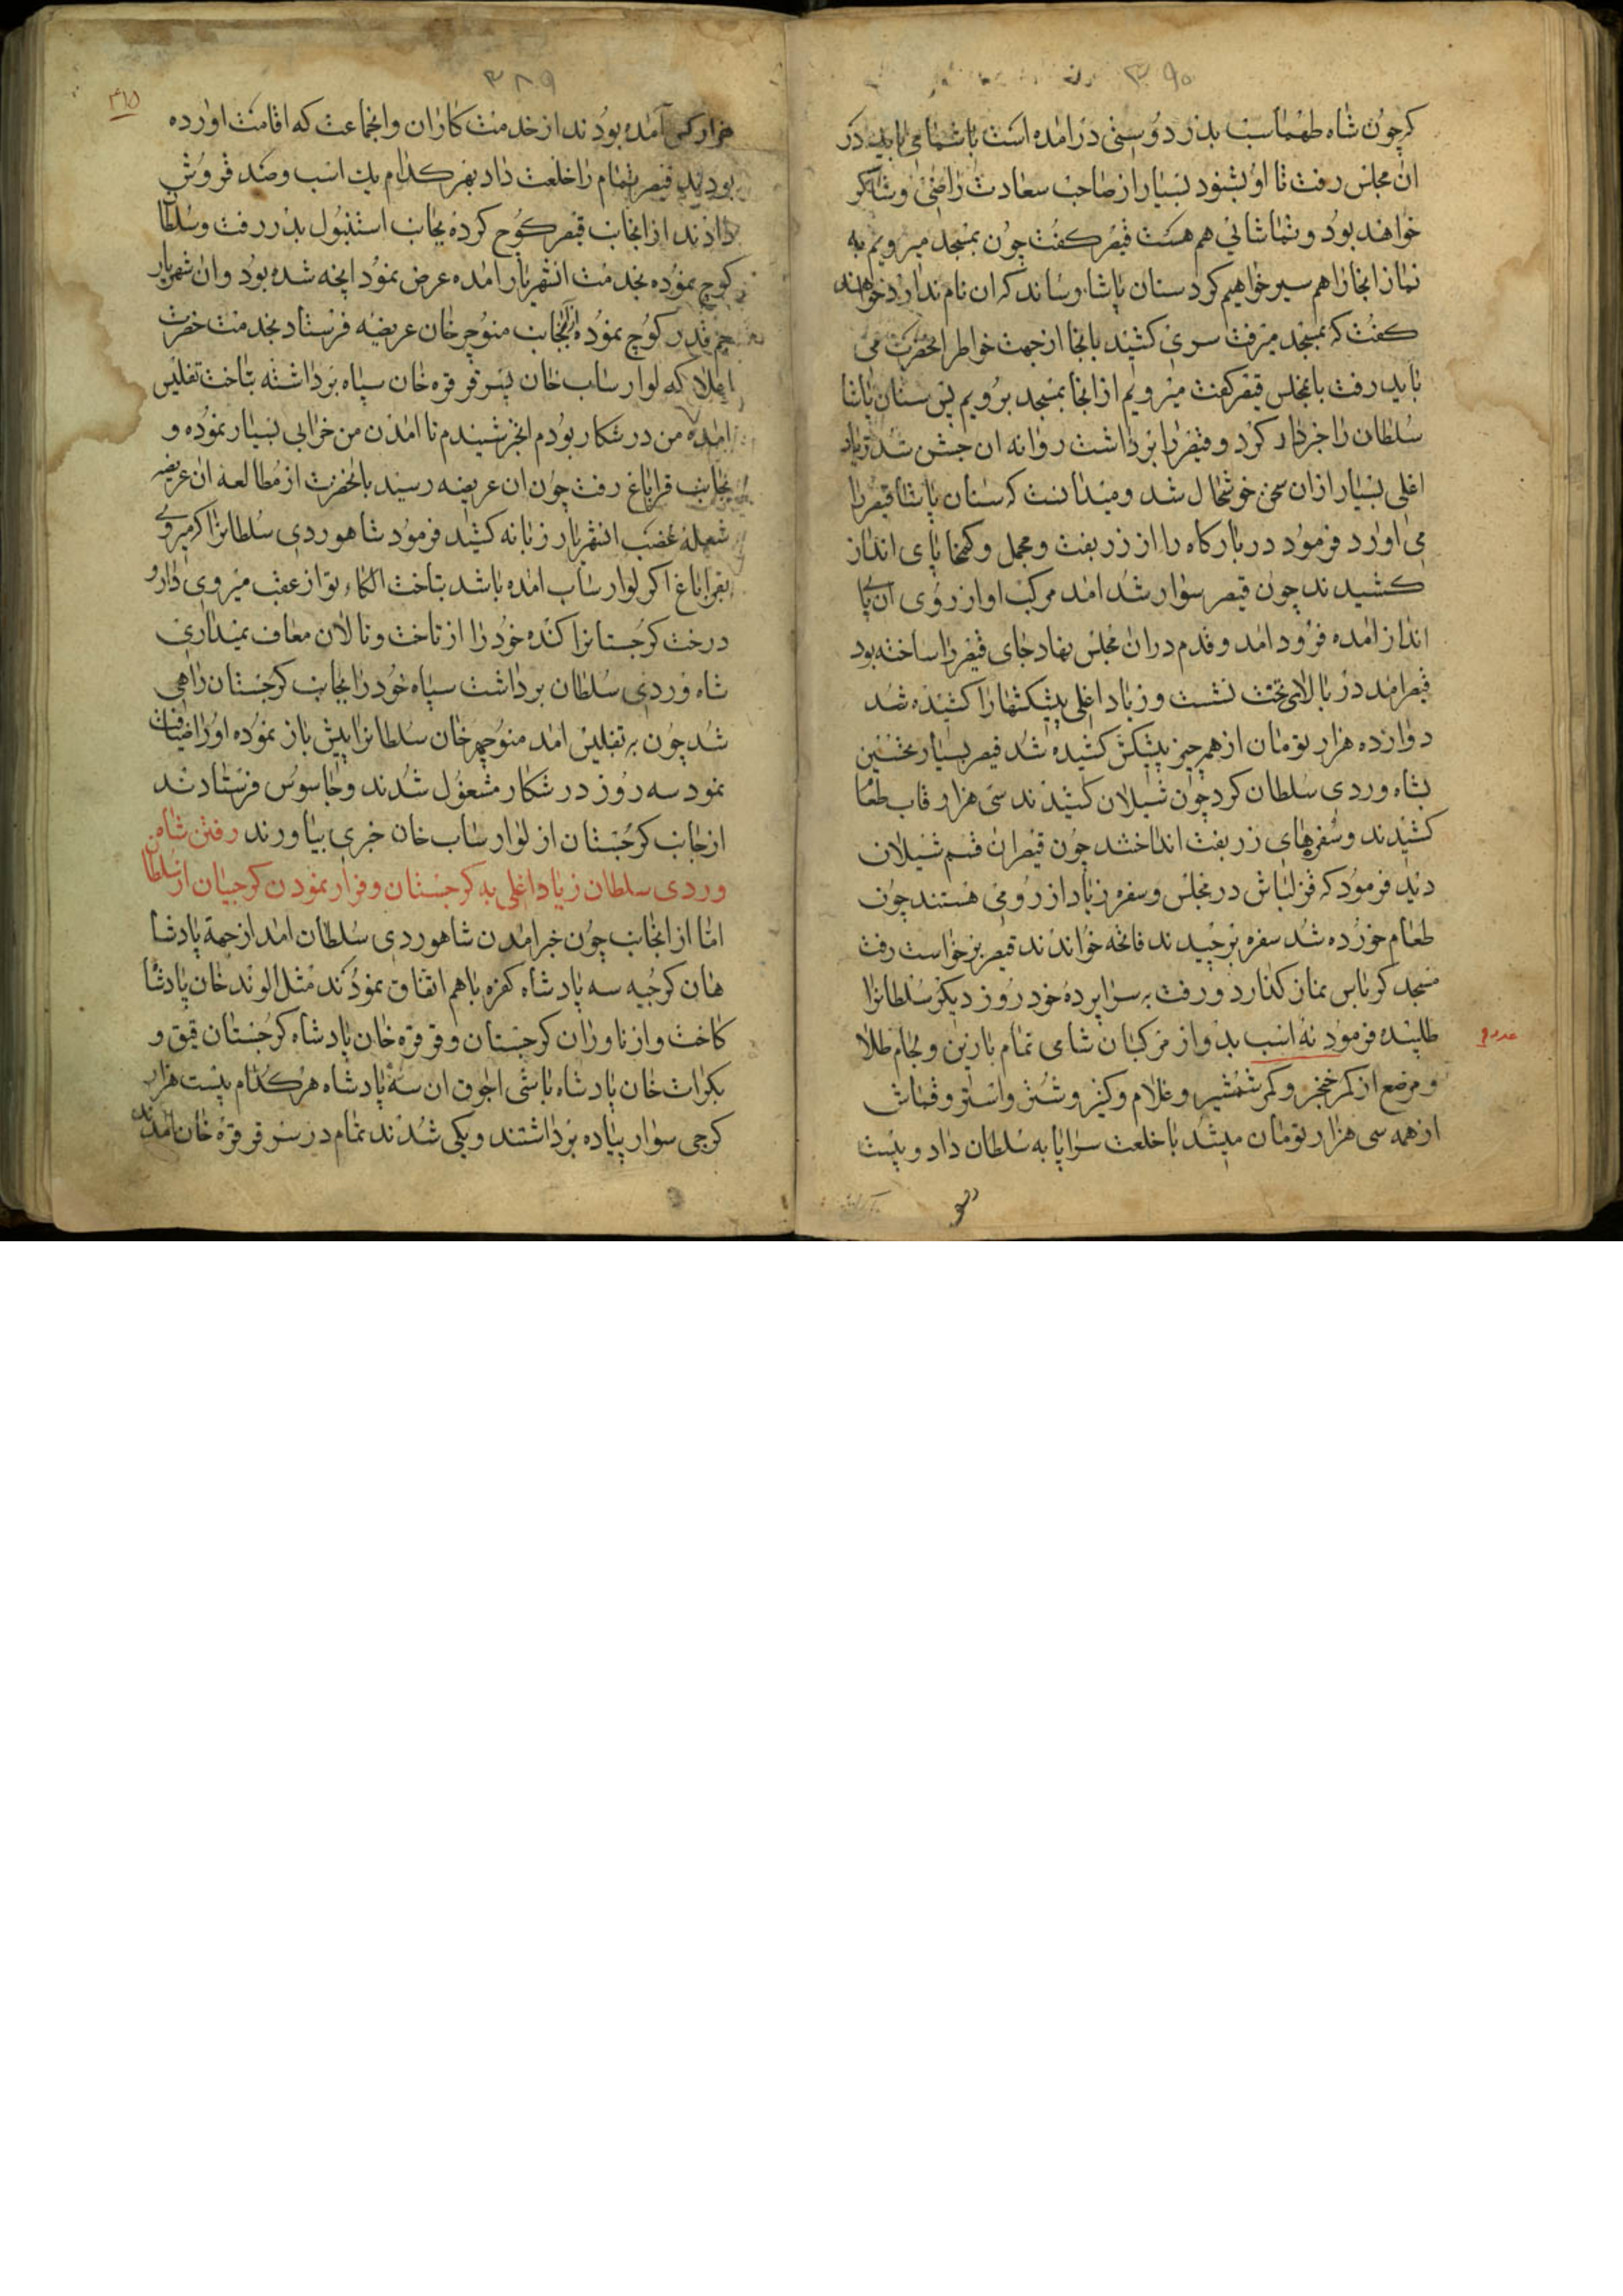 ۳۹۰
کرچون شاه طهماسب بدر دوستی درامده است باشما می باید در
ان مجلس رفت تا او بشنود بسیار از صاحب سعادت راضی و شاکر
خواهند بود و تماشائی هم هست قیصر کفت چون بمسجد میرویم به
نماز انجا را هم سیر خواهیم کرد سنان پاشا رساند که ان نام ندارد خواهند
کفت که بمسجد میرفت سری کشید بانجا از جهت خواطر انحضرت می
باید رفت بامجلس قیصر کفت میرویم از انجا بمسجد برویم پس سنان پاشا
سلطان را خبردار کرد و قیصر را برداشت روانه ان جشن شد زیاد
اغلی بسیار ازان سخن خوشحال شد و میدانست که سنان پاشا قیصر را
می اورد فرمود در بارکاه را از زربفت و مخمل و کمخا پای انداز
کشیدند چون قیصر سوار شد امد مرکب او از روی ان پا
انداز امده فرود امد و قدم دران مجلس نهاد جای قیصر را ساخته بود
قیصر امد در بالای تخت نشست و زیاد اغلی پیشکشها را کشیده شد
دوازده هزار تومان از همه چیز پیشکش کشیده شد قیصر بسیار تحسین
بشاه وردی سلطان کرد چون شیلان کشیدند سی هزار قاب طعام
کشیدند و سفرهای زربفت انداختند چون قیصر ان قسم شیلان
دید فرمود که قزلباش در مجلس و سفره زیاد از رومی هستند چون
طعام خورده شد سفره برچیدند فاتحه خواندند قیصر برخواست رفت
مسجد کرباس نماز کذارد و رفت به سراپرده خود روز دیکر سلطانرا
طلبیده فرمود نه اسب بدو از مرکبان شامی تمام بازین و لجام طلا
و مرصع از کمر خنجر و کمر شمشیر و غلام و کنیز و شتر و استر و قماش
از همه سی هزار تومان میشد با خلعت سراپا به سلطان داد و بیست
۳۸۹
هزار کس آمده بودند از خدمت کاران وانجماعت که اقامت اورده
بودند قیصر تمام را خلعت داد بهر کدام یک اسب و صد قروش
دادند از انجانب قیصر کوچ کرده بجانب استنبول بدر رفت و سلطان
کوچ نموده بخدمت انشهریار امده عرض نمود انچه شده بود وان شهریار
جم قدر کوچ نموده از انجانب منوچهر خان عریضه فرستاد بخدمت حضرت
اعلا که لوارساب خان پسر قرقره خان سپاه برداشته بتاخت تفلیس
امده من در شکار بودم انخبر شنیدم تا امدن من خرابی بسیار نموده و
بجانب قراباغ رفت چون ان عریضه رسید بانحضرت از مطالعه ان عریضه
شعله غضب انشهریار زبانه کشید فرمود شاهوردی سلطانرا که میروی
بقراباغ اکر لوارساب امده باشد بتاخت الکاء تو از عقب میروی دار و
درخت کرجستانرا کنده خود را از تاخت و تالان معاف نمیداری
شاه وردی سلطان برداشت سپاه خود را بجانب کرجستان راهی
شد چون به تفلیس امد منوچهر خان سلطانرا پیش باز نموده او را ضیافت
نمود سه روز در شکار مشغول شدند و جاسوس فرستادند
از جانب کرجستان از لوارساب خان خبری بیاورند رفتن شاه
وردی سلطان زیاد اغلی به کرجستان و فرار نمودن کرجیان از سلطان
اما از انجانب چون خبر امدن شاهوردی سلطان امد از جمه پادشا
هان کرجیه سه پادشاه کفره باهم اتفاق نمودند مثل الوند خان پادشاه
کاخت و از ناوران کرجستان و قرقره خان پادشاه کرجستان قیق و
بکرات خان پادشاه باشی اجوق ان سه پادشاه هر کدام بیست هزار
کرجی سوار پیاده برداشتند و یکی شدند تمام در سر قرقره خان امدند